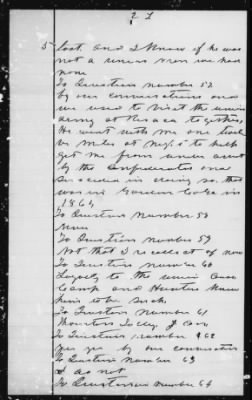 2 L
5 lost and I know if he was
not a union man we had
none
To Question number 52
by our conversations and
we used to visit the union
army at Resaca together
He went with me one
miles at night to help
get me from under arrest
by the Confederates and
succeeded in doing so. this
was in Gordon Co Ga in
1864
To Question Number 58
None
To Question Number 59
Not that I recollect of now
To Question Number 60
Loyalty to the union Cause
Camp and Hunter knew
him to be such
To Question Number 61
J
To Question number 62
yes by our conversation
To Question Number 63
I do not
To Question Number 64